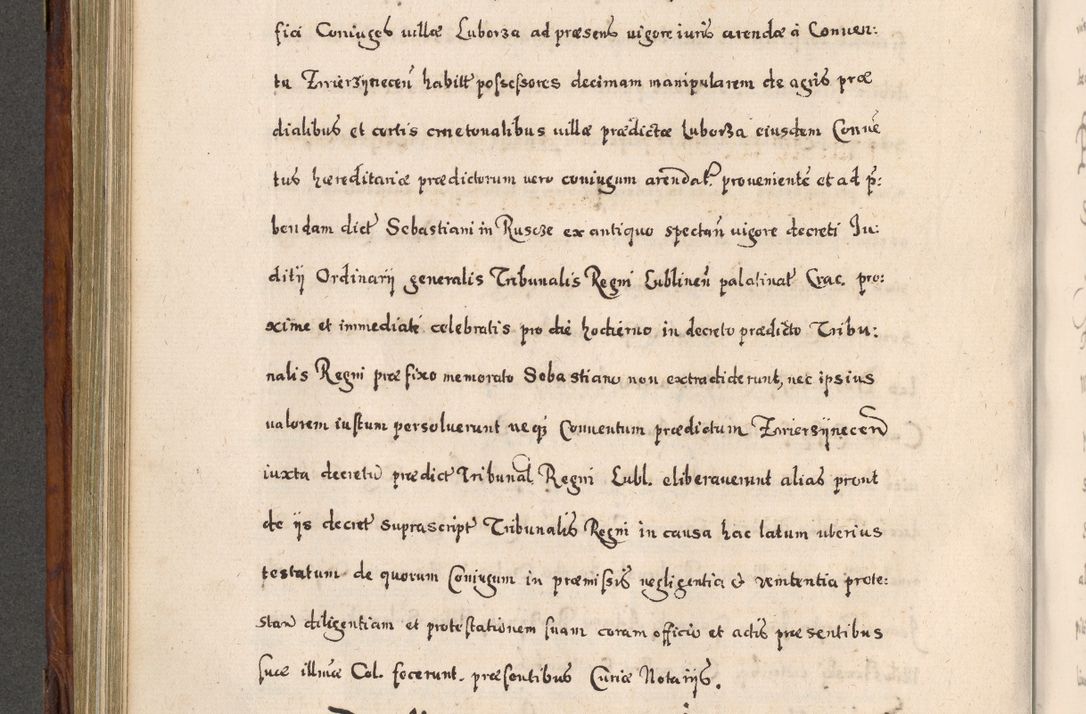 fici Coniuges villæ Luborza ad præsens vigore iuris arendæ à Conven:
tu Zwierzÿnecen̄ habitt possessores decimam manipularem de agris præ
dialibus et certis cmetonalibus villæ prædictæ Luborza eiusdem Convē
tus hæreditariæ prædictorum vero coniugum arendat. provenientē et ad p̄:
bendam dict Sebastiani in Ruscze ex antiquo spectan̄ vigore decreti Iu:
ditij Ordinarij generalis Tribunalis Regni Lublinen̄ palatinat Crac. pro:
xime et immediatē celebratis pro die hodierno in decreto prædicto Tribu:
nalis Regni præfixo memorato Sebastiano non extradiderunt, nec ipsius
valorem iustum persolverunt neq3 Conventum prædictum Zwierzÿnecen̄
iuxta decretū prædict Tribunal Regni Lubl. eliberaverunt alias prout
de ijs decret suprascript Tribunalis Regni in causa hac latum uberius
testatum de quorum Coniugum in præmissis negligentia & renitentia prote:
stan̄ diligentiam et protestationem suam coram officio et actis præsentibus
suæ illmæ Cel. fecerunt. præsentibus Curiæ Notarijs.